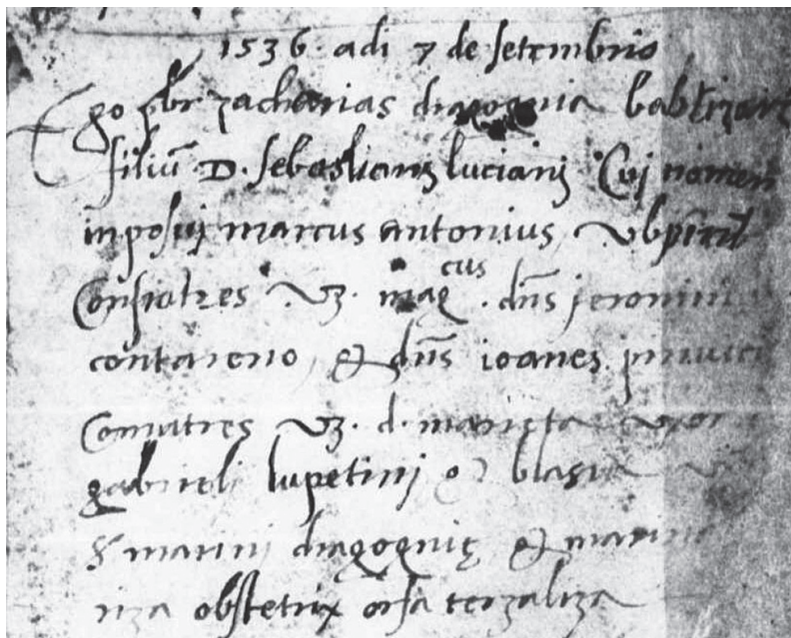 1536. adi 7 de setembrio
Ego pbr zacharias dragognia babtizavi
filiu D. sebastianj lucianj Cuj nomen
inposuj marcus antonius,
Conpatres vz. magcus. dns jeronim
contareno, & dns ioanes
Comatres vz. d. marieta uxor
gabrieli lupetinj & blasia
& marini dragognię & marin
riza obstetrix orsa terzaliza